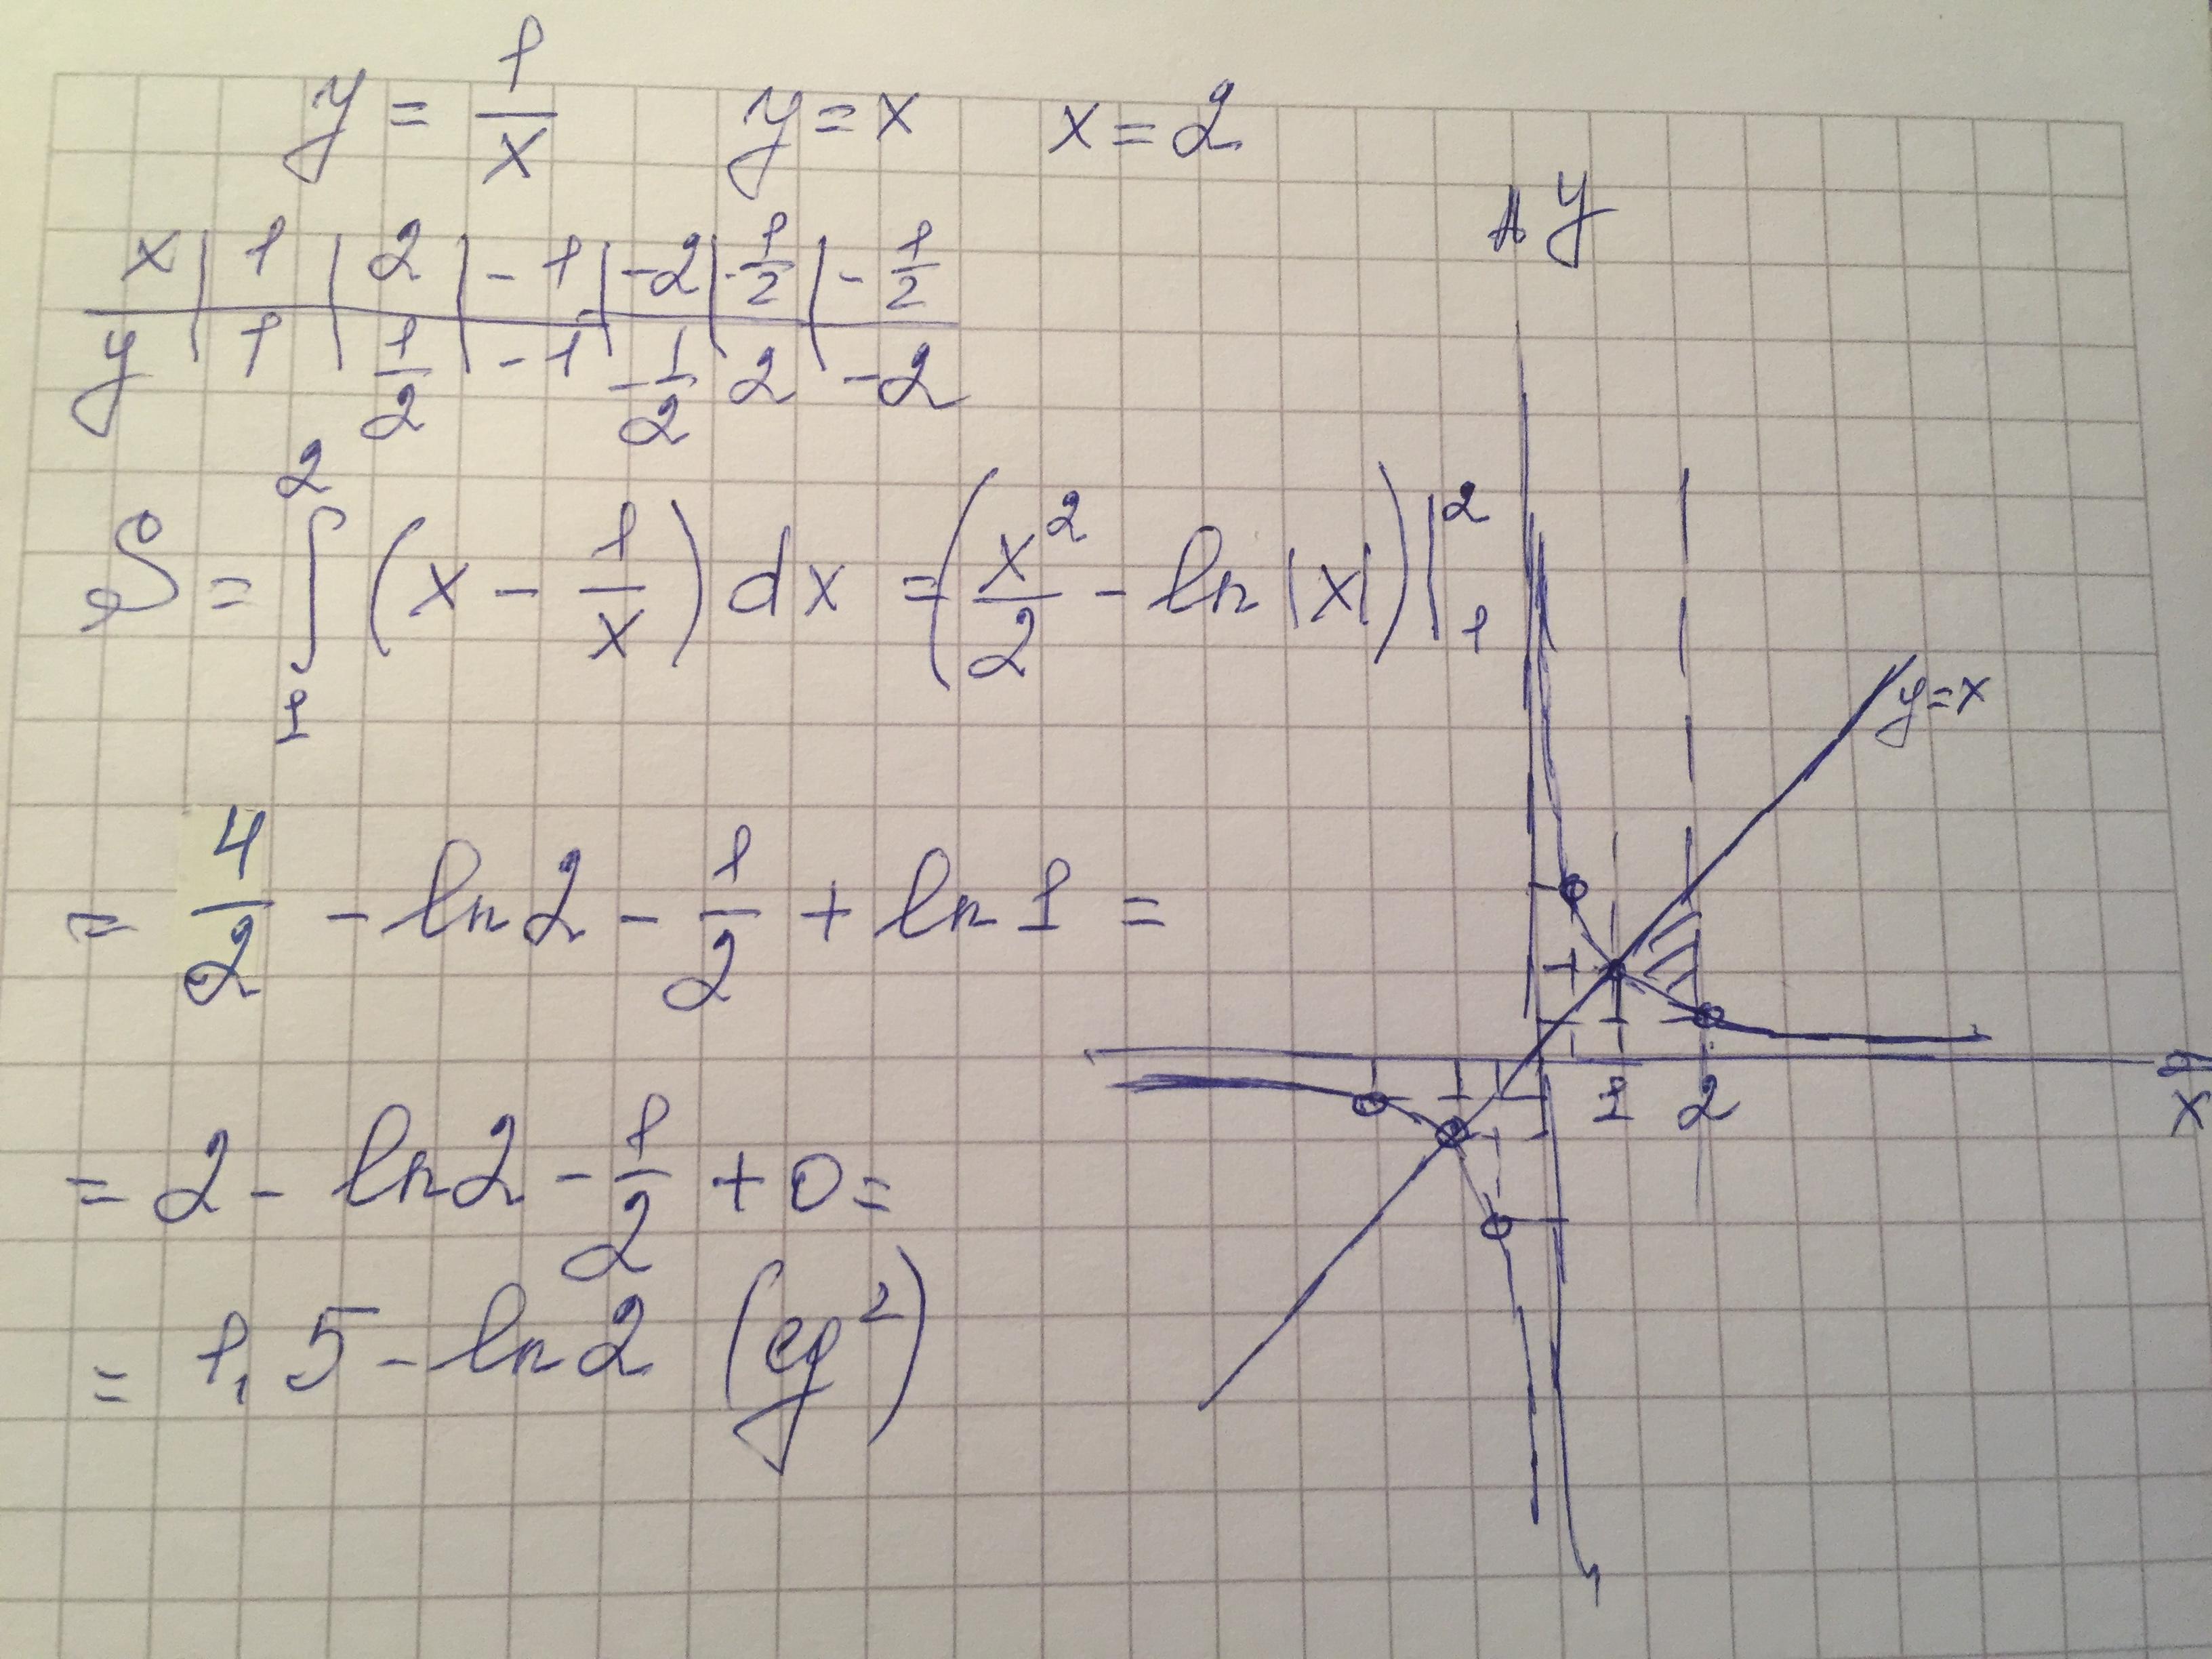 y = 1/x y = x x = 2
x | 1 | 2 | -1 | -2 | -1/2 | -1/2
y | 1 | 1/2 | -1 | -1/2 | 2 | -2
S = ∫₁² (x - 1/x) dx = (x²/2 - ln|x|)|₁²
= 4/2 - ln2 - 1/2 + ln1 =
= 2 - ln2 - 1/2 + 0 =
= 1,5 - ln2 (eg²)
y
y=x
1 2
x